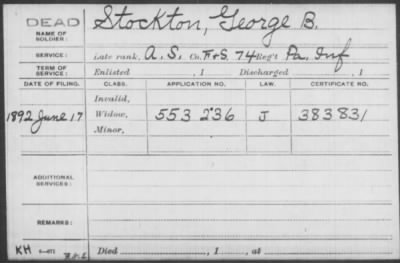 DEAD Stockton, George B.
NAME OF SOLDIER:
SERVICE: Late rank, A. S. Co. F+S. 74 Reg't Pa. Inf
TERM OF SERVICE: Enlisted , 1 Discharged , 1
DATE OF FILING. CLASS. APPLICATION NO. LAW. CERTIFICATE NO.
Invalid,
1892 June 17 Widow, 553 236 J 383831
Minor,
ADDITIONAL SERVICES:
REMARKS:
KH
Died , 1 , at